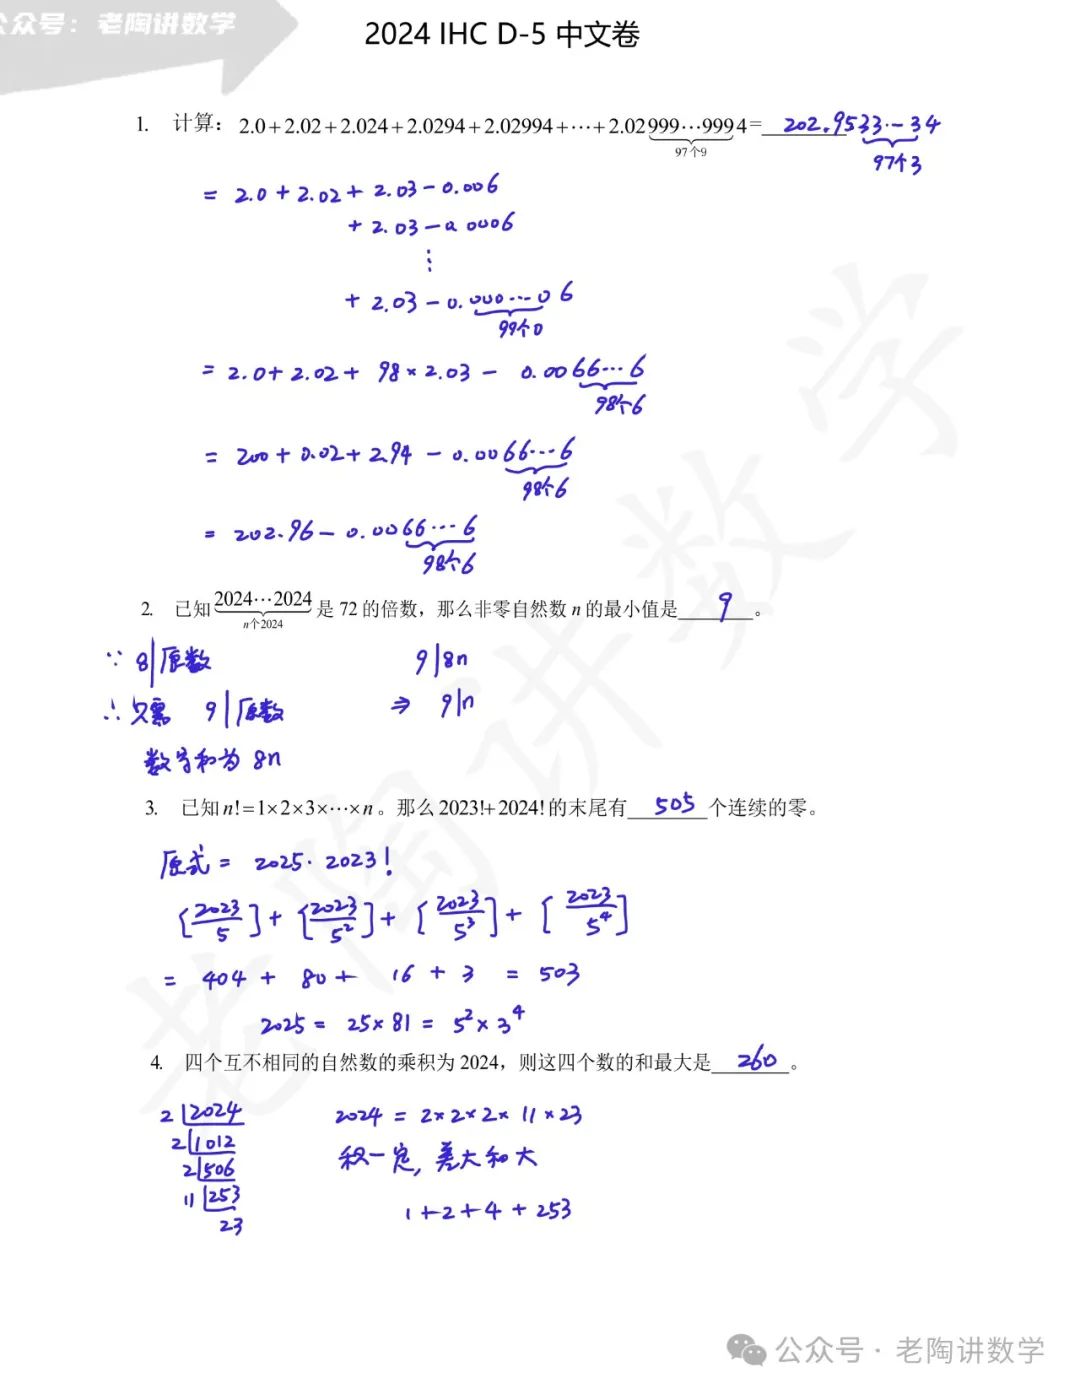 公众号：老陶讲数学
2024 IHC D-5 中文卷
1. 计算：2.0+2.02+2.024+2.0294+2.02994+⋯+2.02999⋯9994= 202.9533⋯34
97个9
97个3
= 2.0 + 2.02 + 2.03 - 0.006
+ 2.03 - 0.0006
⋮
+ 2.03 - 0.000⋯06
99个0
= 2.0 + 2.02 + 98 × 2.03 - 0.0066⋯6
98个6
= 200 + 0.02 + 2.94 - 0.0066⋯6
98个6
= 202.96 - 0.0066⋯6
98个6
2. 已知2024⋯2024是72的倍数，那么非零自然数n的最小值是 9 。
n个2024
∵ 8|原数 9|8n
∴ 只需 9|原数 ⇒ 9|n
数字和为 8n
3. 已知n!=1×2×3×⋯×n。那么2023!+2024!的末尾有 505 个连续的零。
原式 = 2025·2023!
[2023/5] + [2023/5²] + [2023/5³] + [2023/5⁴]
= 404 + 80 + 16 + 3 = 503
2025 = 25×81 = 5²×3⁴
4. 四个互不相同的自然数的乘积为2024，则这四个数的和最大是 260 。
2|2024 2024 = 2×2×2×11×23
2|1012
2|506 积一定，差大和大
11|253
23 1+2+4+253
老陶讲数学
公众号·老陶讲数学